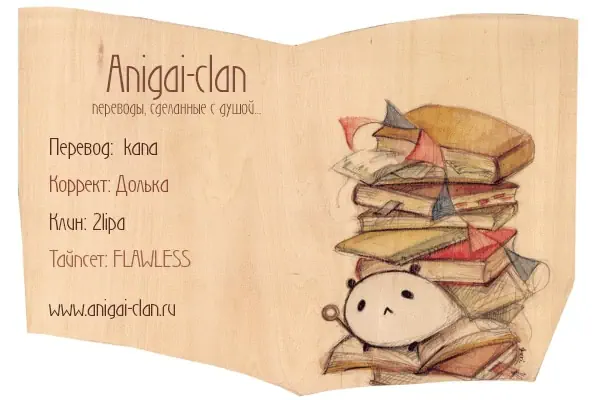 Anigai-clan
переводы, сделанные с душой...
Перевод: kana
Коррект: Долька
Клин: 2lipa
Тайпсет: FLAWLESS
www.anigai-clan.ru